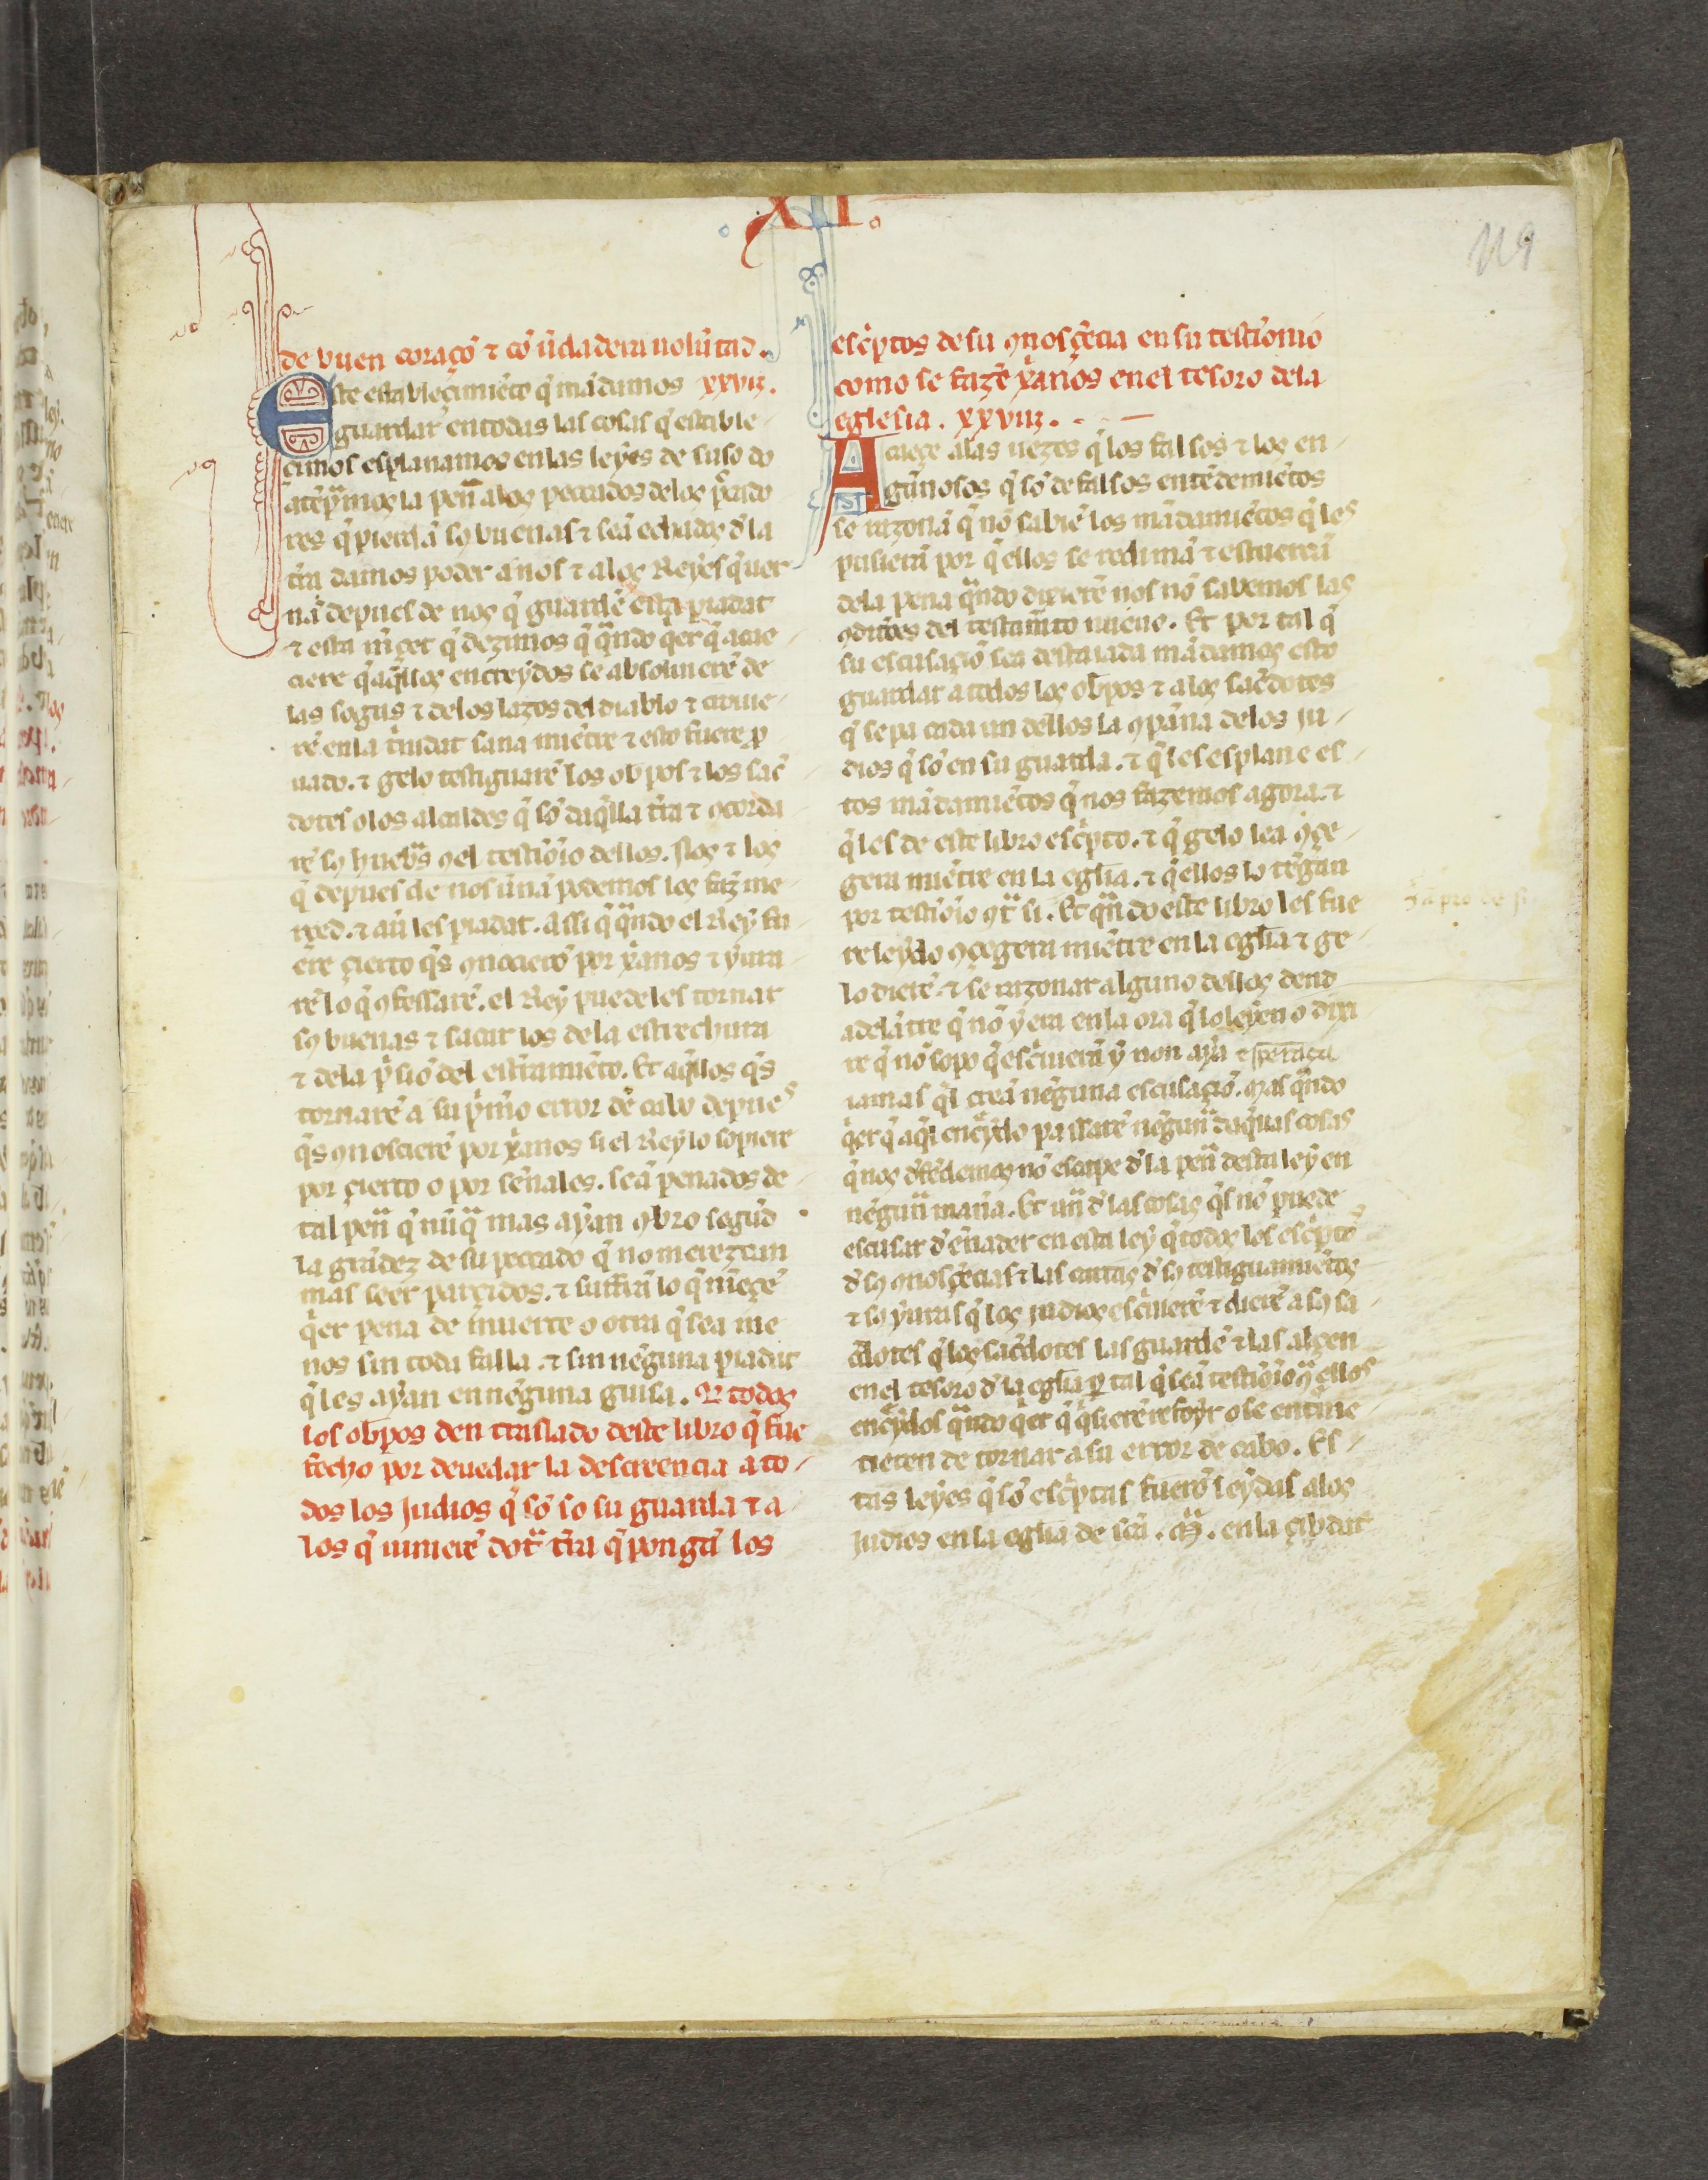 XII.
119
de buen coraçõ ⁊ cõ ũdadera uolũtad.
Este establecimiẽto q̃ mãdamos xxvii.
guardar en todas las cosas q̃ estable
cimos esplanamos en las leyes de suso do
los peccados delos
res q̃ pierdã sꝯ buenas ⁊ seã echados d̃ la
tr̃ra damos poder a nos ⁊ alos Reyes
nã depues de nos q̃ guardẽ esta piadat
⁊ esta m̃çet q̃ dezimos q̃ quãdo q̃er q̃ acae
ciere q̃ aq̃llos encreydos se absoluierẽ de
las sogas ⁊ delos lazos del diablo ⁊
rẽ en la sana miẽtre ⁊ esto fuere p
uado. ⁊ gelo testiguarẽ los obpos ⁊ los sac̃
dotes o los alcaldes q̃ sõ daq̃lla tr̃ra ⁊ ꝯcorda
rẽ sꝯ huebras ꝯel testiõio dellos. Nos ⁊ los
q̃ depues de nos ũnã podemos los faz̃ me
rced. ⁊ au̾ les piadat. assi q̃ quãdo el Rey fu
ere çierto q̃s ꝯnocierõ por xãnos ⁊ yura
rẽ lo q̃ ꝯfessarẽ. el Rey puede les tornar
sꝯ buenas ⁊ sacar los de la estrechura
⁊ dela p̃siõ del estiramiẽto. Et aq̃llos q̃s
tornarẽ a su p̃m̃o error de cabo depues
q̃s ꝯnoscierẽ por xãnos si el Rey lo sopiere
por çierto o por señales. seã penados de
tal pena q̃ nũqua mas ayan ꝯbro segũd
la grãdez de su peccado q̃ no merezcan
mas seer parçidos. ⁊ suffrã lo q̃ m̃eçẽ
q̃er pena de muerte o otra q̃ sea me
nos sin toda falla. ⁊ sin nẽguna piadat
q̃ les ayan en nẽguna guisa. Q̃ todos
los obpos den traslado deste libro q̃ fue
fecho por deuedar la descreencia a to
dos los judios q̃ sõ so su guarda ⁊ a
los q̃ uinierẽ dotra tr̃ra q̃ pongã los
esc̃ptos de su ꝯnosçẽcia en su testiõnio
como se fazẽ xãnos en el tesoro dela
eglesia. xxviii.
Acaeçe alas uezes q̃ los falsos ⁊ los en
gãnosos q̃ sõ de falsos entẽdemiẽtos
se razonã q̃ nõ sabiẽ los mãdamiẽtos q̃ les
pusierã por q̃ ellos se redimã ⁊ estuerçã
dela pena quãdo dixierẽ nos nõ sabemos las
ꝯdic̃oes del testam̃to nueuo. Et por tal q̃
su escusaçiõ sea destaiada mãdamos esto
guardar a todos los obpos ⁊ a los sac̃dotes
q̃ sepa cada un dellos la ꝯpãna delos ju
dios q̃ sõ en su guarda. ⁊ q̃ les esplane es
tos mãdamiẽtos q̃ nos fazemos agora. ⁊
q̃ les de este libro esc̃pto. ⁊ q̃ gelo lea ꝯçe
gera miẽtre en la eglia. ⁊ q̃ ellos lo tẽgan
por testiõio ꝯtra si. Et quãdo este libro les fue
re leydo ꝯçegera miẽtre en la eglia ⁊ ge
lo dierẽ. ⁊ se razonar alguno dellos dend
adelãtre q̃ nõ yera en la ora q̃ lo leyen o dixi
re q̃ nõ sopo q̃ esc̃uierã y non aya esperãça
iamas q̃l creã nẽguna escusaçiõ. Mas quãdo
q̃er q̃ aq̃l encreydo passarẽ nẽguna daq̃llas cosas
q̃ nos dfẽdemos nõ escape d̃ la pena desta ley en
nẽguna manã. Et una d̃ las cosas q̃s nõ puede
escusar d̃ ẽnader en esta ley q̃ todos los esc̃ptos
d̃ sꝯ ꝯnosçẽcias ⁊ las cartas d̃ sꝯ testiguamiẽtos
⁊ sꝯ yuras q̃ los judios esc̃uierẽ ⁊ dierẽ a sꝯ sa
c̃dotes q̃ los sac̃dotes las guardẽ ⁊ las alçen
en el tesoro d̃ la eglia p̱ tal q̃ seã testiõio ꝯtra ellos
encreydos quãdo q̃er q̃ q̃sierẽ refoyr o se entme
tieren de tornar a su error de cabo. Es
tas leyes q̃ sõ esc̃ptas fuerõ leydas alos
judios en la eglia de sc̃a. Mã. en la çibdat